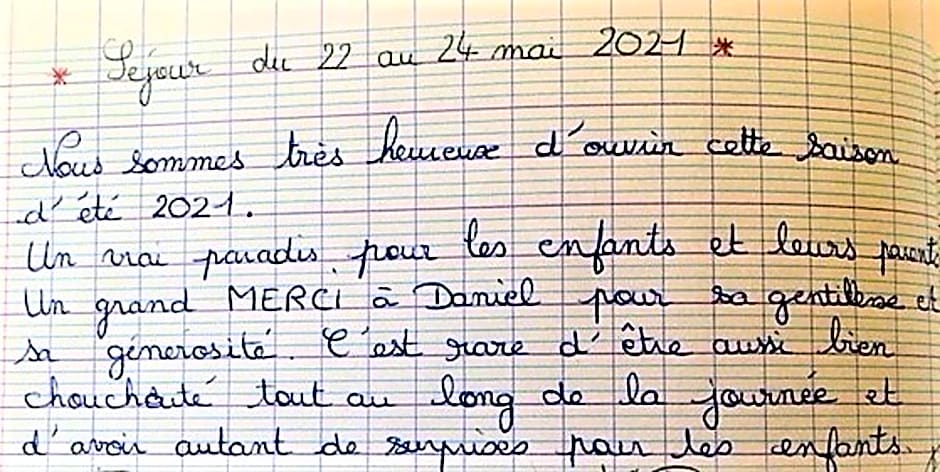 * Séjour du 22 au 24 mai 2021 *
Nous sommes très heureux d'ouvrir cette saison
d'été 2021.
Un vrai paradis pour les enfants et leurs parents
Un grand MERCI à Daniel pour sa gentillesse et
sa générosité. C'est rare d'être aussi bien
chouchouté tout au long de la journée et
d'avoir autant de surprises pour les enfants.